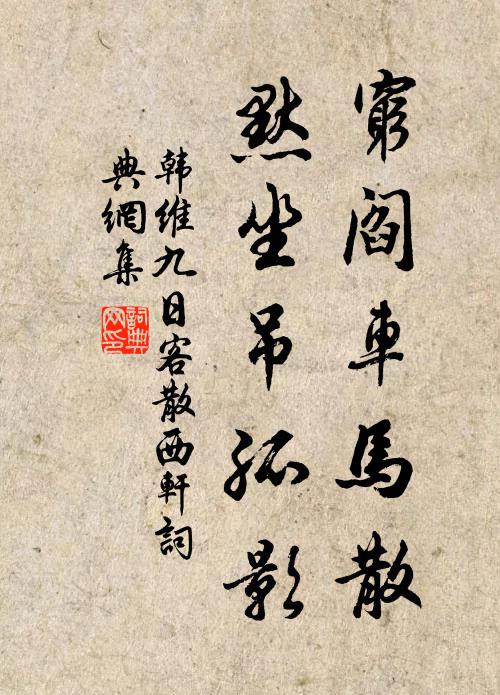 窮閻車馬散
默坐吊孤影
韩維九日客散西軒詞
典網集
詞典
网印